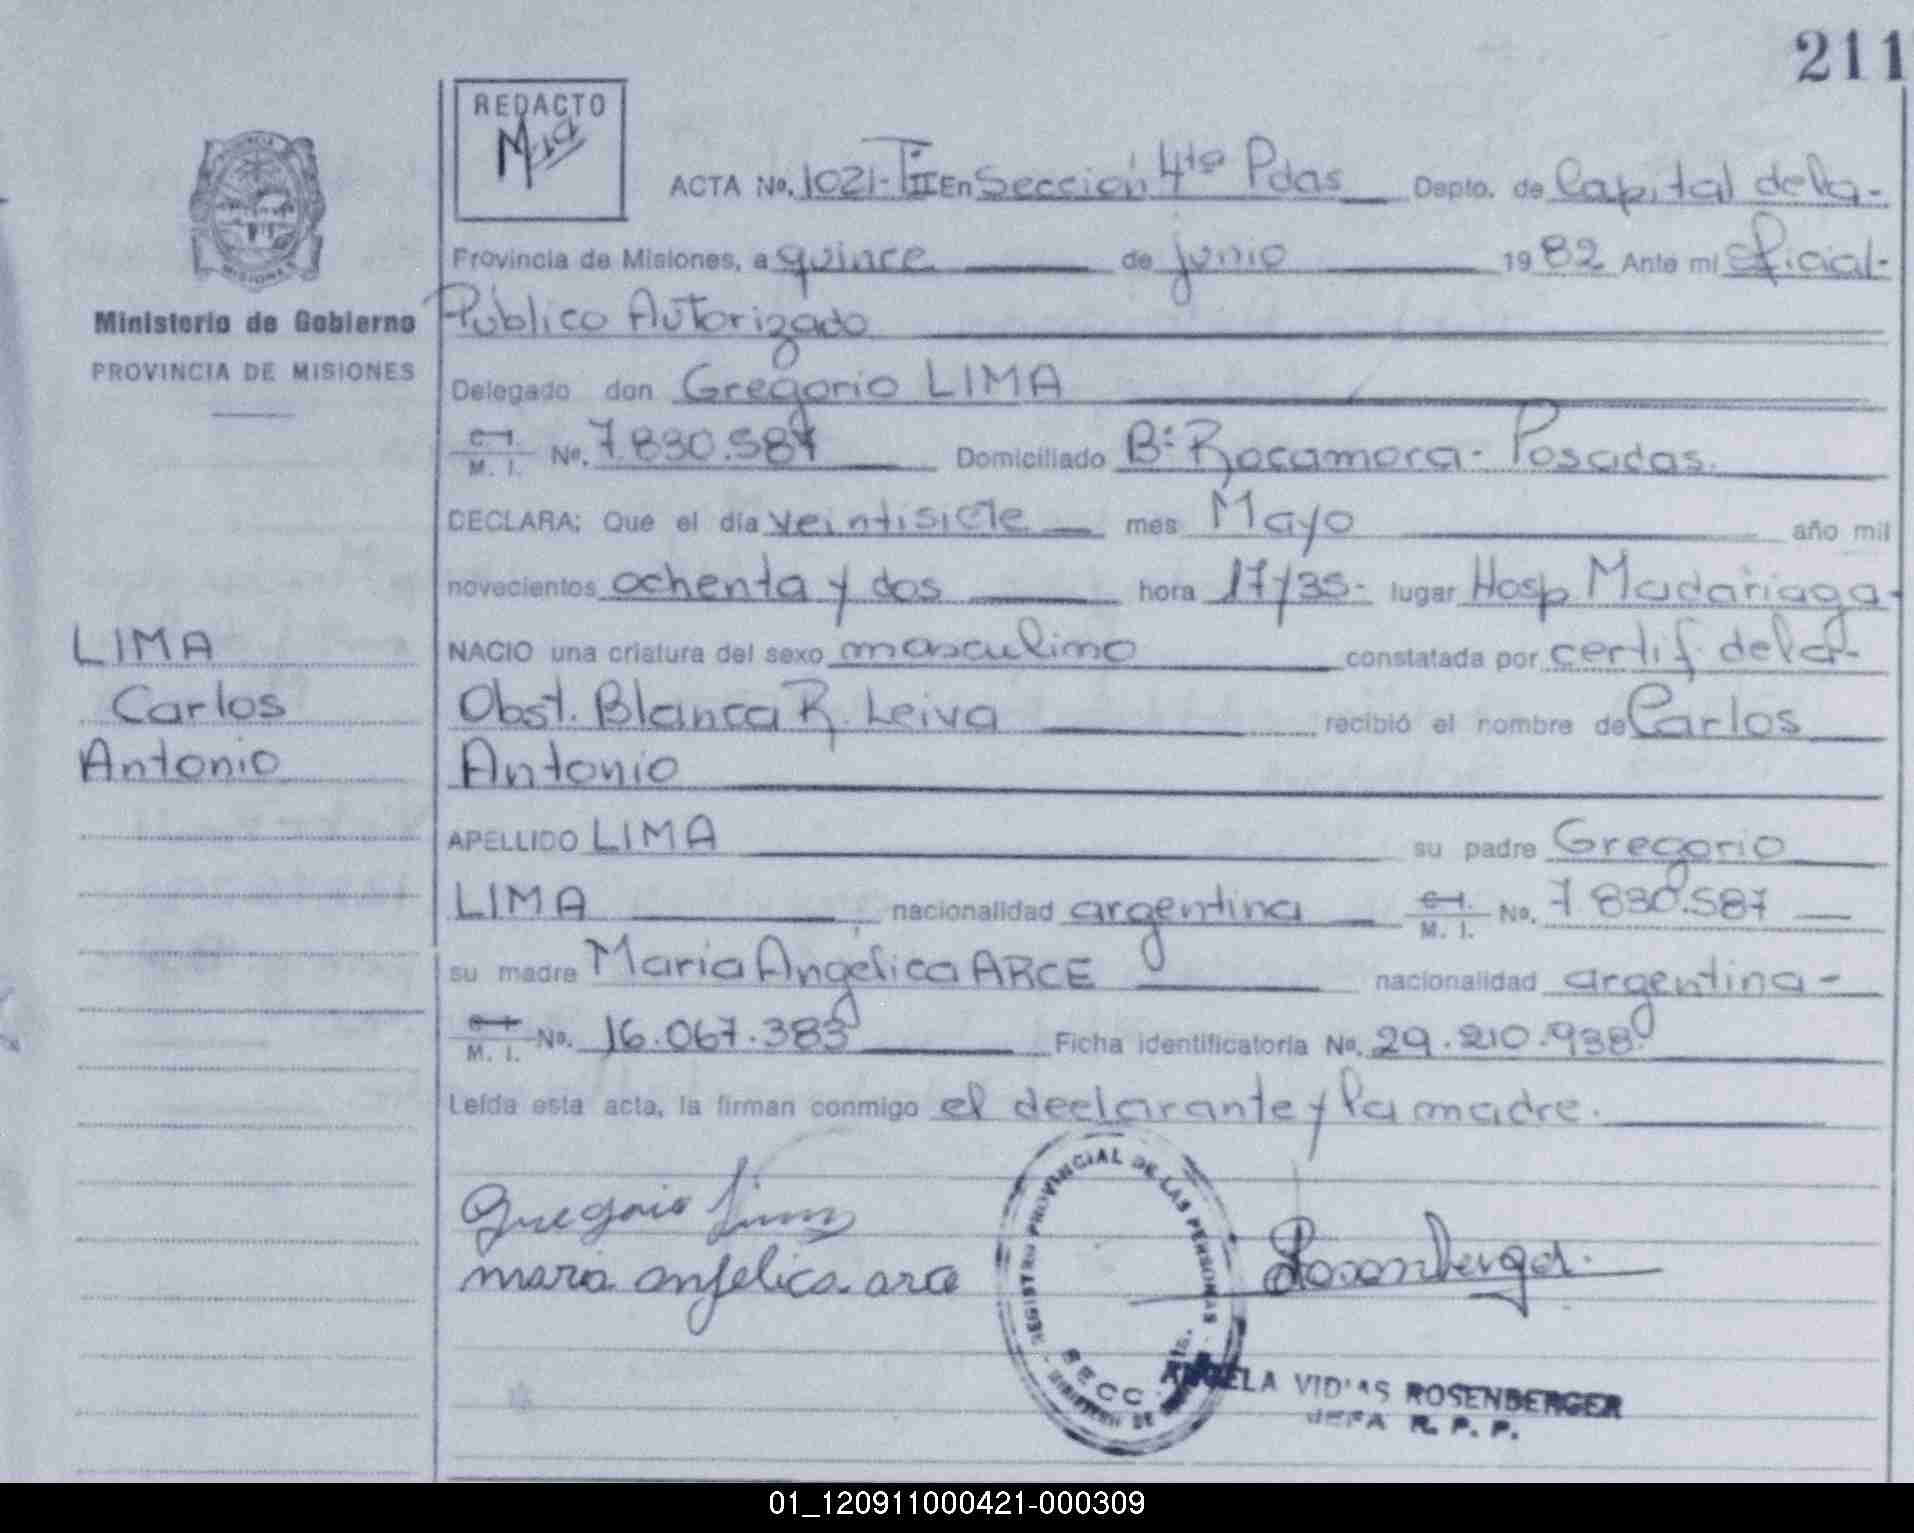 211
REDACTO
ACTA No. 1021-TIII En Sección 4ta Pdas Depto. de Capital dela-
Provincia de Misiones, a quince de junio 1982 Ante mi oficial-
Ministerio de Gobierno
Público Autorizado
PROVINCIA DE MISIONES
Delegado don Gregorio LIMA
C.I. M. I. No. 7.830.587 Domiciliado Bº Rocamora- Posadas.
DECLARA: Que el día veintisiete mes Mayo año mil
novecientos ochenta y dos hora 17/35- lugar Hosp Madariaga-
LIMA
NACIO una criatura del sexo masculino constatada por certif. dela-
Carlos
Obst. Blanca R. Leiva recibió el nombre de Carlos
Antonio
Antonio
APELLIDO LIMA su padre Gregorio
LIMA nacionalidad argentina C.I. M. I. No. 7.830.587
su madre María Angélica ARCE nacionalidad argentina-
C.I. M. I. No. 16.067.383 Ficha identificatoria No. 29.210.938.
Leída esta acta, la firman conmigo el declarante y la madre.
Gregorio Lima
maria anjelica arce
Rosenberger
REGISTRO PROVINCIAL DE LAS PERSONAS
SECC
ROSENBERGER
JEFA R. P. P.
01_120911000421-000309